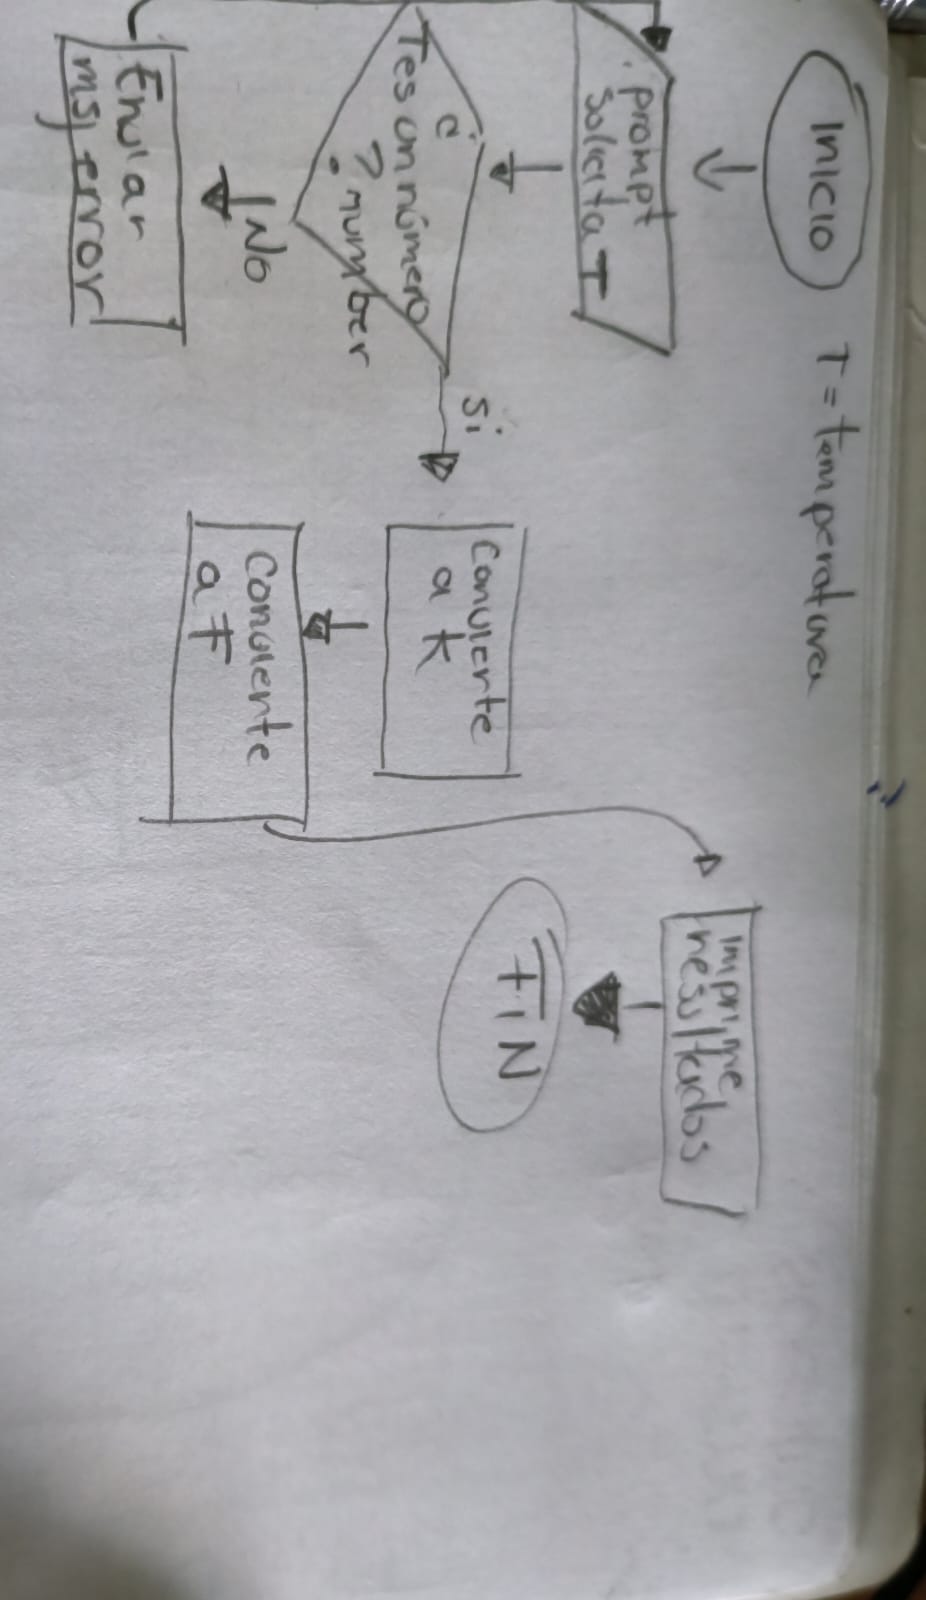 Inicio
T = temperatura
prompt
solicita T
¿
T es un número
? number
Si
No
Enviar
msj error
Convierte
a K
Convierte
a F
imprime
resultados
FiN